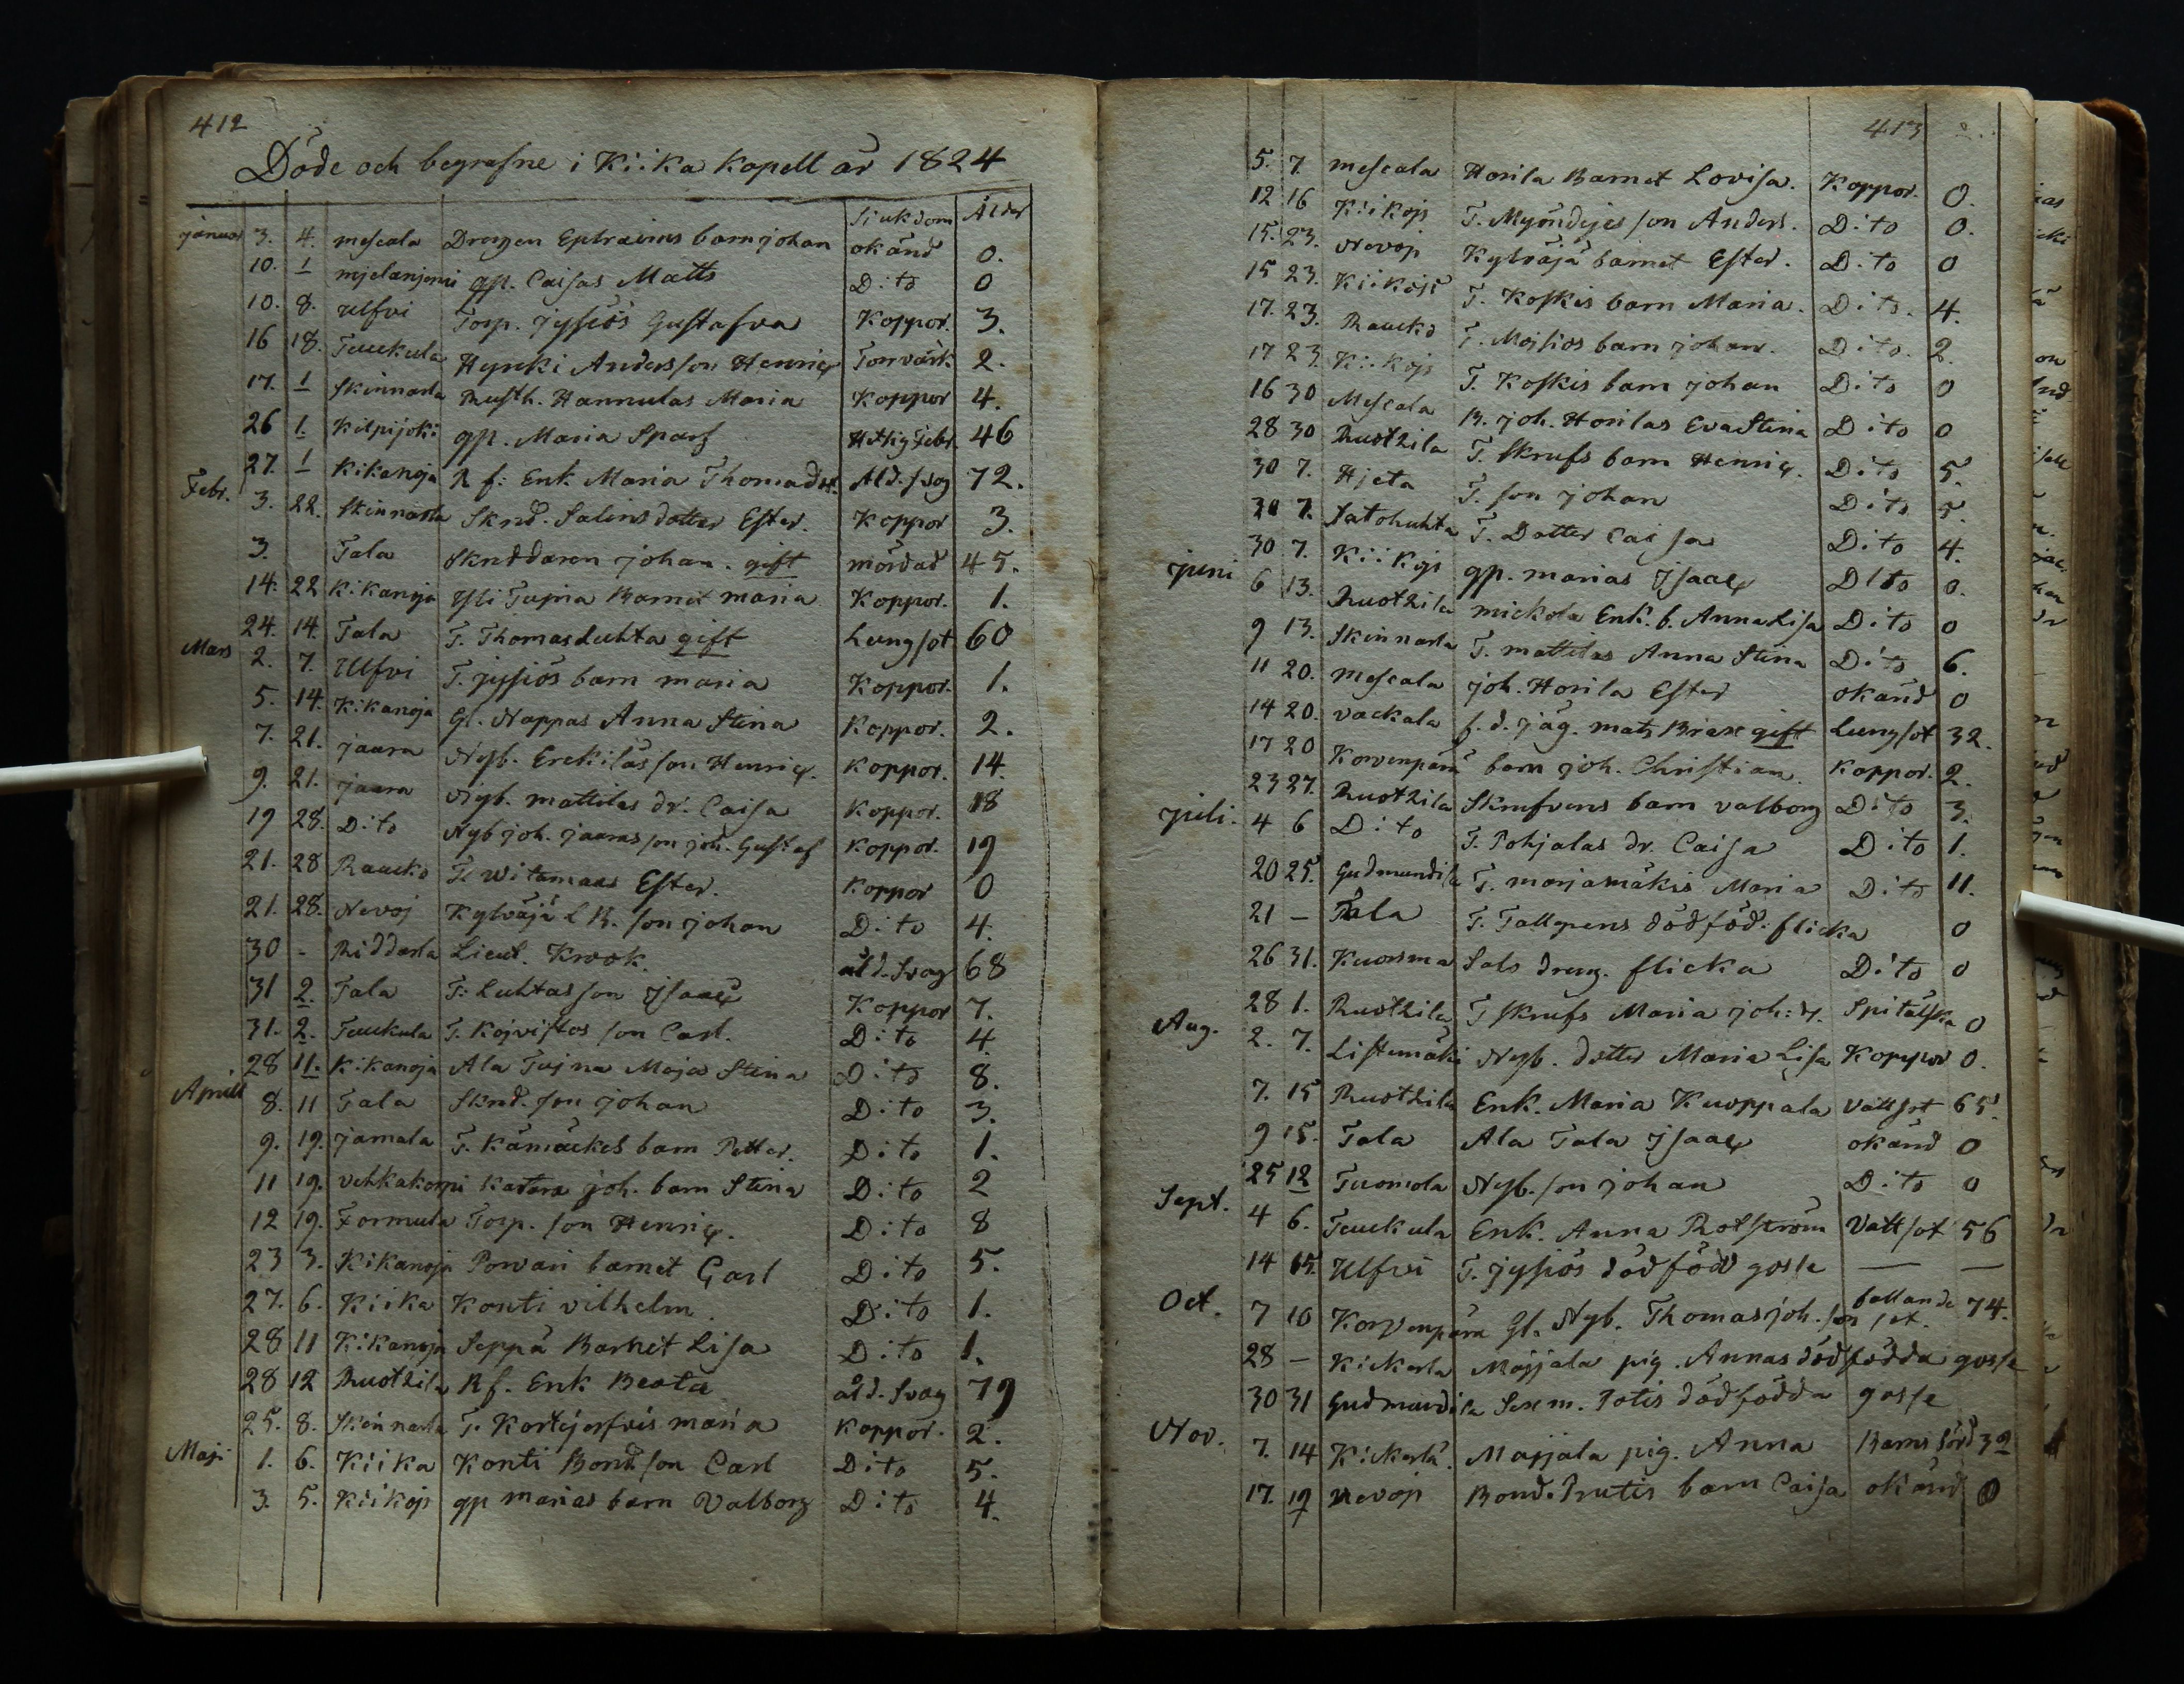 412
Döde och begrafne i Kiika Kapell år 1824
Siukdom Ålder
januar 3. 4. mescala Drengen Ephraims barn johan okänd 0.
10. 1 mjelanjemi gp. Caisas Matts Dito 0
10. 8. Ulfvi Torp. jysiös Gustafva Koppor. 3.
16 18. Teuckula Hyrcki Andersson Henric Torrvärk 2.
17. 1 Skinnarla Rusth. Hannulas Maria Koppor 4.
26 1. Kilpijoki gp. Maria Sparf Hetsig Feber 46
27. 1 Kikanoja R f: Enk. Maria Thomadr. Ald. svag 72.
Febr. 3. 22. Skinnarla Sknd. Salins dotter Ester. Koppor 3.
3. Tala Sknddaren johan. gift mördad 45.
14. 22 Kikanoja Yli Tujna Barnet maria Koppor. 1.
24. 14. Tala T. Thomas Luhta gift Lungsot 60
Mars 2. 7. Ulfvi T. jysiös barn maria Koppor. 1.
5. 14. Kikanoja Gl. Nappas Anna Stina Koppor. 2.
7. 21. jaara Nyb. Erckiläs son Henric. Koppor. 14.
9. 21. jaara Nyb. mattilas dr. Caisa Koppor. 18
19 28. Dito Nyb joh. jaaras son joh. Gustaf Koppor. 19
21. 28 Raucko T. Witamaas Ester. Koppor 0
21. 28. Nevoj Kylväjä L B. son johan Dito 4.
30 - Ridderla Lieut. Krook. åld. Svag 68
31 2. Tala T. Luhtas son Isaac Koppor 7.
31. 2. Teuckula T. Kojvistos son Carl. Dito 4
28 11. Kikanoja Ala Tujna Maja Stina Dito 8.
Aprill 8. 11 Tala Sknd. son johan Dito 3.
9. 19. jamala T. Kämäckes barn Petter. Dito 1.
11 19. Vehkakorpi Katara joh. barn Stina Dito 2
12 19. Formula Torp. son Henric. Dito 8
23 3. Kikanoja Porvari barnet Carl Dito 5.
27. 6. Kiika Konti vilhelm Dito 1.
28 11 Kikanoja Seppä Barnet Lisa Dito 1.
28 12 Ruothila Rf. Enk Beata åld. Svag 79
25. 8. Skinnarla T. Kortejerfvis maria Koppor. 2.
Maji 1. 6. Kiika Konti Bond. son Carl Dito 5.
3. 5. Kiikojs gp marias barn Valborg Dito 4.
413
5. 7. mescala Horila Barnet Lovisa. Koppor. 0.
12 16 Kiikojs T. Myöndejes son Anders. Dito 0.
15. 23. Nevoj Kylväjä barnet Ester. Dito 0
15 23. Kiikojs T. Koskis barn Maria. Dito. 4.
17. 23. Raucko T. Mojsios barn johan. Dito. 2.
17 23 Kiikojs T. Koskis barn johan Dito 0
16 30 Mescala B. joh. Horilas Eva Stina Dito 0
28 30 Ruothila T. Skrufs barn Henric. Dito 5.
30 7. Hjeta T. son johan Dito 5.
30 7. Satohuhta T. Dotter Caisa Dito 4.
30 7. Kiikojs gp. marias Isaac Dito 0.
juni 6 13. Ruothila mickola Enk. b. Anna Lisa Dito 0
9 13. Skinnarla T. mattilas Anna Stina Dito 6.
11 20. mescala joh. Horila Ester okänd 0
14 20. vackala f. d. jäg. mats Brax gift Lungsot 32.
17 20 Korvenpärä barn joh. Christian. Koppor. 2.
23 27. Ruothila Skrufvens barn valborg Dito 3.
juli. 4 6 Dito T. Pohjalas dr. Caisa Dito 1.
20 25. Gudmundila T. marjamäkis Maria Dito 11.
21 - Tala T. Tallgrens dödföd. flicka 0
26 31. Kuorsma Sals dreng. flicka Dito 0
28 1. Ruothila T Skrufs Maria joh: d. Spitälska 0
Aug. 2. 7. Listemäki Nyb. dotter Maria Lisa Koppor 0.
7. 15 Ruothila Enk. Maria Kuoppala Vattsot 65.
9 15. Tala Ala Tala Isaac okänd 0
25 12 Tuomola Nyb. son johan Dito 0
Sept. 4 6. Teuckula Enk. Anna Rotström Vattsot 56
14 15. Ulfvi T. jysiös dödföd gosse — —
Oct. 7 10 Korvenpära Gl. Nyb. Thomas joh. son fallande sot. 74.
28 - Kickerla Majjala pig. Annas dödfödda gosse
30 31 Gudmundila Sexm. Potis dödfödda gosse
Nov. 7. 14 Kickerla. Majjala pig. Anna Barns börd 39
17. 19 Nevoj Bond. Prutis barn Caisa okänd 0